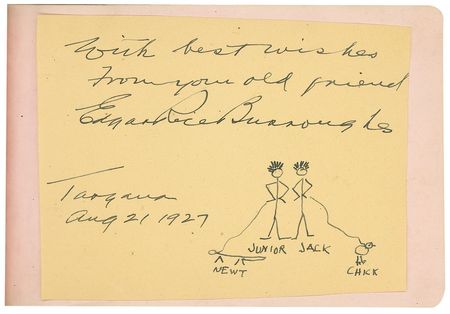 With best wishes
From your old friend
Edgar Rice Burroughs
Tarzana
Aug 21 1927
JUNIOR JACK
NEWT
CHICK